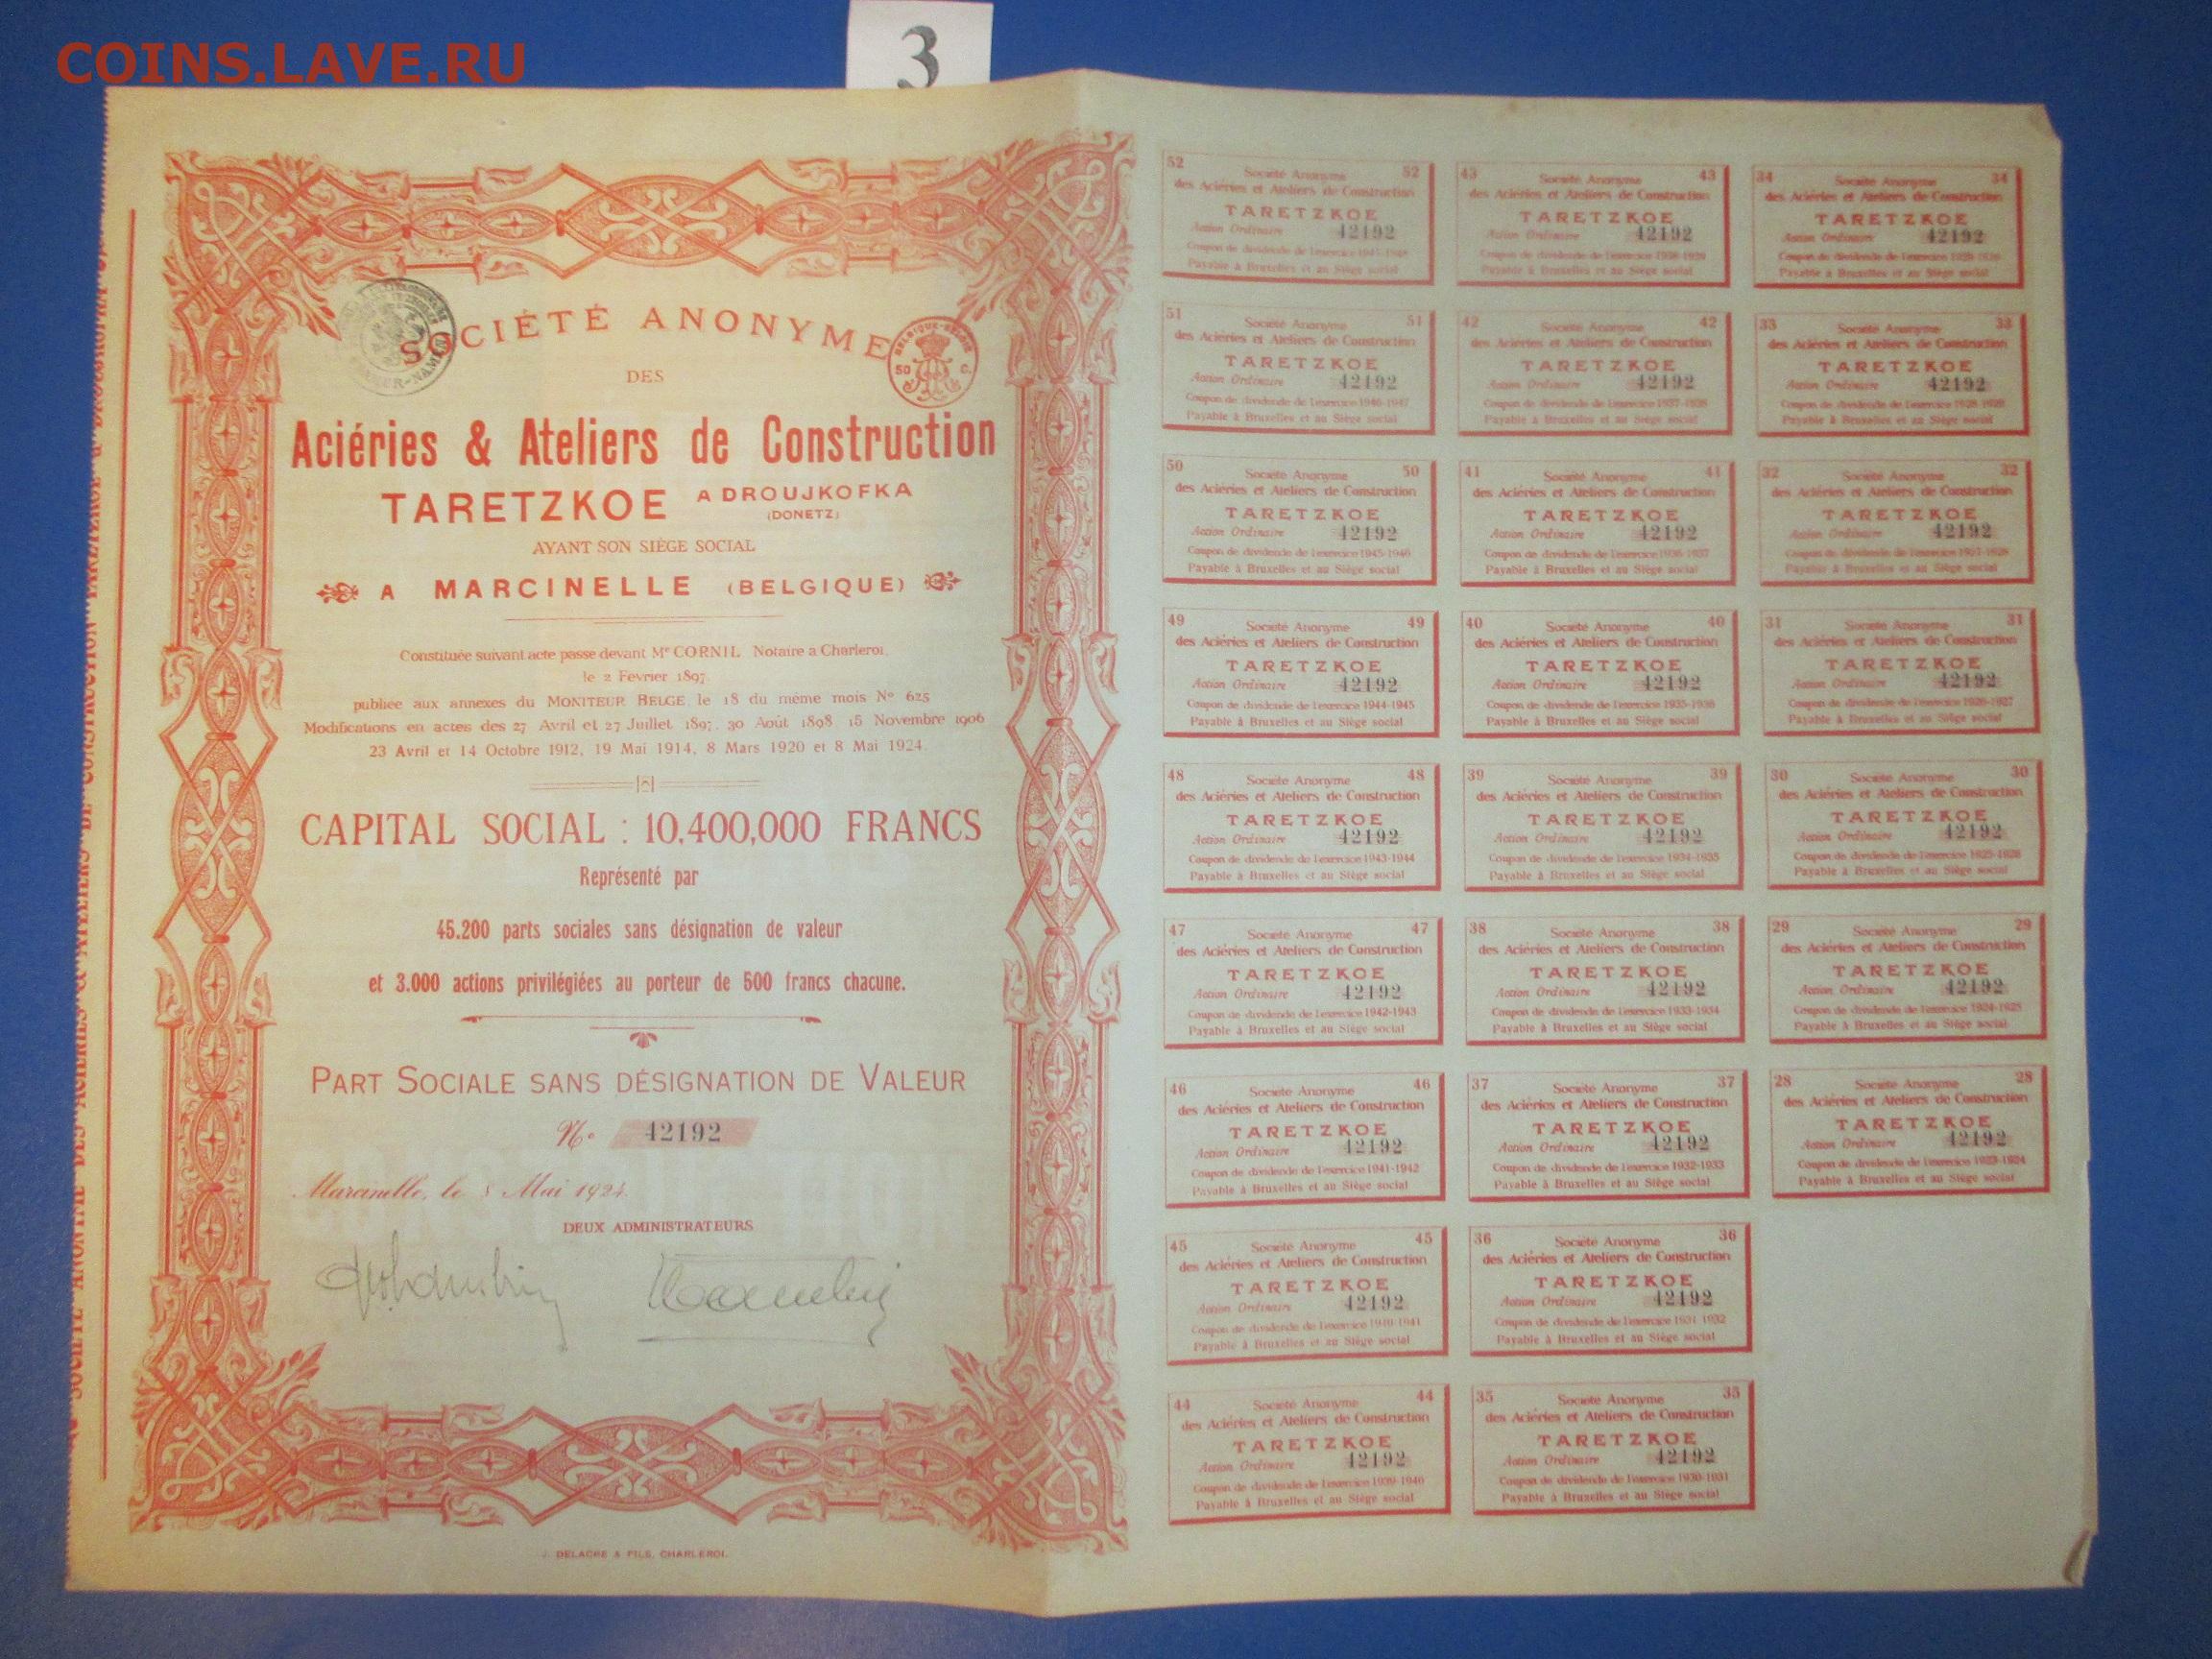 COINS.LAVE.RU
3
SOCIÉTÉ ANONYME
DES
Aciéries & Ateliers de Construction
TARETZKOE A DROUJKOFKA
(DONETZ)
AYANT SON SIÈGE SOCIAL
A MARCINELLE (BELGIQUE)
Constituée suivant acte passé devant Me CORNIL Notaire à Charleroi,
le 2 Février 1897,
publiée aux annexes du MONITEUR BELGE le 18 du même mois No 625
Modifications en actes des 27 Avril et 27 Juillet 1897, 30 Août 1898 15 Novembre 1906
23 Avril et 14 Octobre 1912, 19 Mai 1914, 8 Mars 1920 et 8 Mai 1924.
CAPITAL SOCIAL : 10,400,000 FRANCS
Représenté par
45.200 parts sociales sans désignation de valeur
et 3.000 actions privilégiées au porteur de 500 francs chacune.
PART SOCIALE SANS DÉSIGNATION DE VALEUR
No 42192
Marcinelle, le 8 Mai 1924.
DEUX ADMINISTRATEURS
J. DELACRE & FILS, CHARLEROI.
BELGIQUE-BELGIË
50 C.
52 Société Anonyme 52
des Aciéries et Ateliers de Construction
TARETZKOE
Action Ordinaire 42192
Payable à Bruxelles et au Siège social
51 Société Anonyme 51
des Aciéries et Ateliers de Construction
TARETZKOE
Action Ordinaire 42192
Coupon de dividende de l'exercice 1946-1947
Payable à Bruxelles et au Siège social
50 Société Anonyme 50
des Aciéries et Ateliers de Construction
TARETZKOE
Action Ordinaire 42192
Coupon de dividende de l'exercice 1945-1946
Payable à Bruxelles et au Siège social
49 Société Anonyme 49
des Aciéries et Ateliers de Construction
TARETZKOE
Action Ordinaire 42192
Coupon de dividende de l'exercice 1944-1945
Payable à Bruxelles et au Siège social
48 Société Anonyme 48
des Aciéries et Ateliers de Construction
TARETZKOE
Action Ordinaire 42192
Coupon de dividende de l'exercice 1943-1944
Payable à Bruxelles et au Siège social
47 Société Anonyme 47
des Aciéries et Ateliers de Construction
TARETZKOE
Action Ordinaire 42192
Coupon de dividende de l'exercice 1942-1943
Payable à Bruxelles et au Siège social
46 Société Anonyme 46
des Aciéries et Ateliers de Construction
TARETZKOE
Action Ordinaire 42192
Coupon de dividende de l'exercice 1941-1942
Payable à Bruxelles et au Siège social
45 Société Anonyme 45
des Aciéries et Ateliers de Construction
TARETZKOE
Action Ordinaire 42192
Coupon de dividende de l'exercice 1940-1941
Payable à Bruxelles et au Siège social
44 Société Anonyme 44
des Aciéries et Ateliers de Construction
TARETZKOE
Action Ordinaire 42192
Coupon de dividende de l'exercice 1939-1940
Payable à Bruxelles et au Siège social
43 Société Anonyme 43
des Aciéries et Ateliers de Construction
TARETZKOE
Action Ordinaire 42192
Coupon de dividende de l'exercice 1938-1939
Payable à Bruxelles et au Siège social
42 Société Anonyme 42
des Aciéries et Ateliers de Construction
TARETZKOE
Action Ordinaire 42192
Coupon de dividende de l'exercice 1937-1938
Payable à Bruxelles et au Siège social
41 Société Anonyme 41
des Aciéries et Ateliers de Construction
TARETZKOE
Action Ordinaire 42192
Coupon de dividende de l'exercice 1936-1937
Payable à Bruxelles et au Siège social
40 Société Anonyme 40
des Aciéries et Ateliers de Construction
TARETZKOE
Action Ordinaire 42192
Coupon de dividende de l'exercice 1935-1936
Payable à Bruxelles et au Siège social
39 Société Anonyme 39
des Aciéries et Ateliers de Construction
TARETZKOE
Action Ordinaire 42192
Coupon de dividende de l'exercice 1934-1935
Payable à Bruxelles et au Siège social
38 Société Anonyme 38
des Aciéries et Ateliers de Construction
TARETZKOE
Action Ordinaire 42192
Coupon de dividende de l'exercice 1933-1934
Payable à Bruxelles et au Siège social
37 Société Anonyme 37
des Aciéries et Ateliers de Construction
TARETZKOE
Action Ordinaire 42192
Coupon de dividende de l'exercice 1932-1933
Payable à Bruxelles et au Siège social
36 Société Anonyme 36
des Aciéries et Ateliers de Construction
TARETZKOE
Action Ordinaire 42192
Coupon de dividende de l'exercice 1931-1932
Payable à Bruxelles et au Siège social
35 Société Anonyme 35
des Aciéries et Ateliers de Construction
TARETZKOE
Action Ordinaire 42192
Coupon de dividende de l'exercice 1930-1931
Payable à Bruxelles et au Siège social
34 Société Anonyme 34
des Aciéries et Ateliers de Construction
TARETZKOE
Action Ordinaire 42192
Coupon de dividende de l'exercice
Payable à Bruxelles et au Siège social
33 Société Anonyme 33
des Aciéries et Ateliers de Construction
TARETZKOE
Action Ordinaire 42192
Coupon de dividende de l'exercice 1928-1929
Payable à Bruxelles et au Siège social
32 Société Anonyme 32
des Aciéries et Ateliers de Construction
TARETZKOE
Action Ordinaire 42192
Coupon de dividende de l'exercice 1927-1928
Payable à Bruxelles et au Siège social
31 Société Anonyme 31
des Aciéries et Ateliers de Construction
TARETZKOE
Action Ordinaire 42192
Coupon de dividende de l'exercice 1926-1927
Payable à Bruxelles et au Siège social
30 Société Anonyme 30
des Aciéries et Ateliers de Construction
TARETZKOE
Action Ordinaire 42192
Coupon de dividende de l'exercice 1925-1926
Payable à Bruxelles et au Siège social
29 Société Anonyme 29
des Aciéries et Ateliers de Construction
TARETZKOE
Action Ordinaire 42192
Coupon de dividende de l'exercice 1924-1925
Payable à Bruxelles et au Siège social
28 Société Anonyme 28
des Aciéries et Ateliers de Construction
TARETZKOE
Action Ordinaire 42192
Coupon de dividende de l'exercice 1923-1924
Payable à Bruxelles et au Siège social